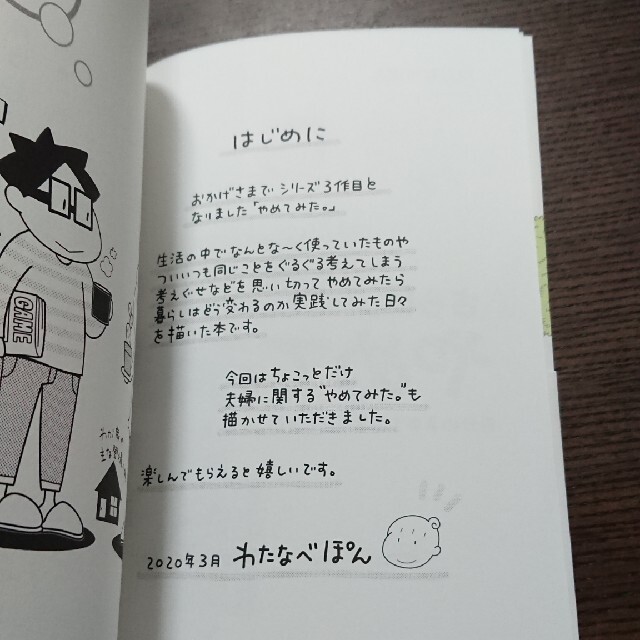 はじめに
おかげさまで シリーズ3作目と
なりました「やめてみた。」
生活の中でなんとな〜く使っていたものや
ついいつも同じことをぐるぐる考えてしまう
考えぐせなどを思い切って やめてみたら
暮らしはどう変わるのか実践してみた日々
を描いた本です。
今回はちょこっとだけ
夫婦に関する"やめてみた。"も
描かせていただきました。
楽しんでもらえると嬉しいです。
2020年3月 わたなべぽん
GAME